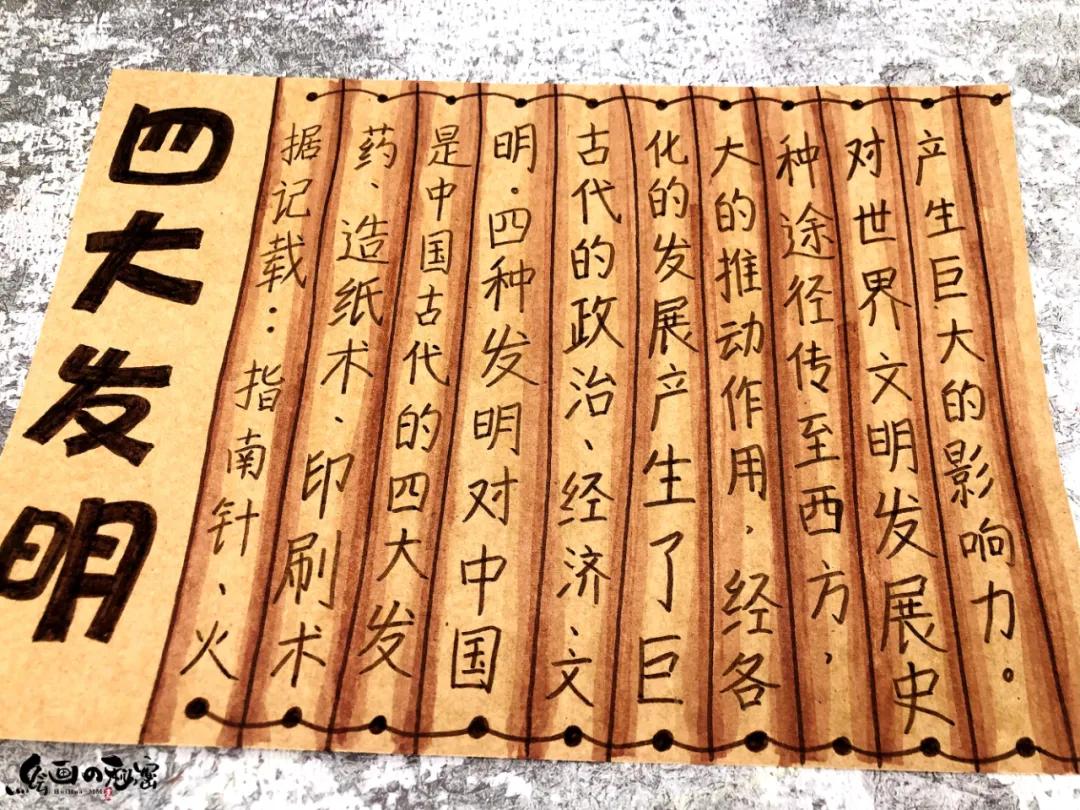 四大发明
据记载：指南针、火
药、造纸术、印刷术
是中国古代的四大发
明.四种发明对中国
古代的政治、经济、文
化的发展产生了巨
大的推动作用，经各
种途径传至西方，
对世界文明发展史
产生巨大的影响力。
绘画の秘密